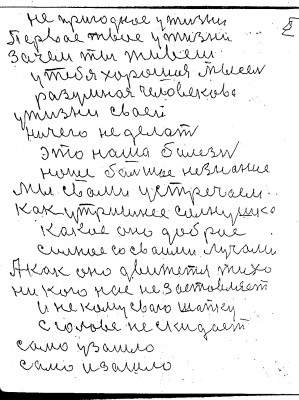 не пригодное у жизни
Первае твае у жизни
Зачем ты живеш
у тебя хорошия мысеи
разумная человекова
2
у жизни сваей
ничего не делат
это наша балезн
наше балшое незнание
Мы свами устречаем
как утришнее сонушко
Какое оно доброе
силное сосваими лучами
А как оно движется тихо
ни кого нас не заставляет
и не кому сваю шапку
с голове не скидает
само узашло
само изашло